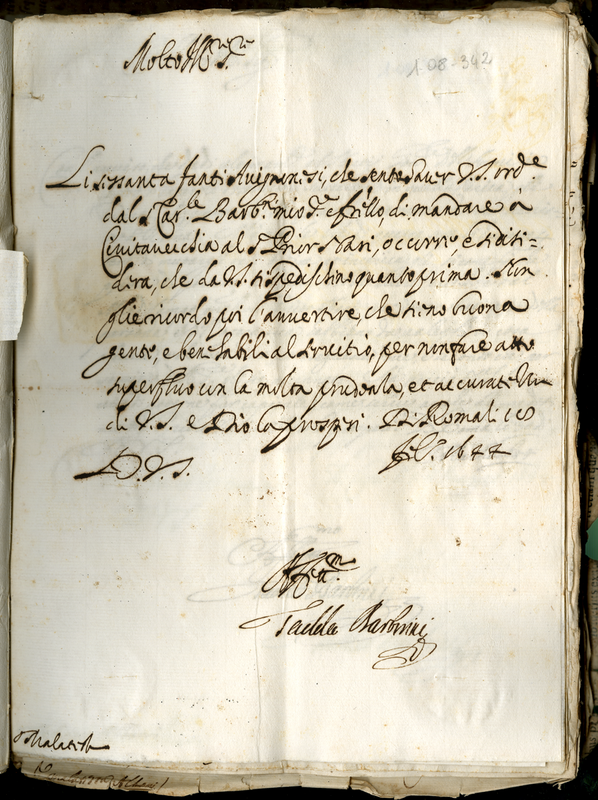 Molto Ill.re S.re
108-342
Li sessanta fanti Avignonesi, che sento haver V.S. ord.e
dal S. Car.le Barb.o mio S.re e frello, di mandare à
Civitavecchia al S. Prior Nari, occorre, e si diti=
dera, che da V.S. si spedischino quanto prima. Non
gli ricordo poi l'avvertire, che sieno buona
gente, e ben habili al servitio, per non fare atto
superfluo con la molta prudenza, et accurate
di V.S. e Dio la prosperi. Di Roma li 10
feb.o 1644
D. V. S.
Aff.mo
Taddeo Barberini